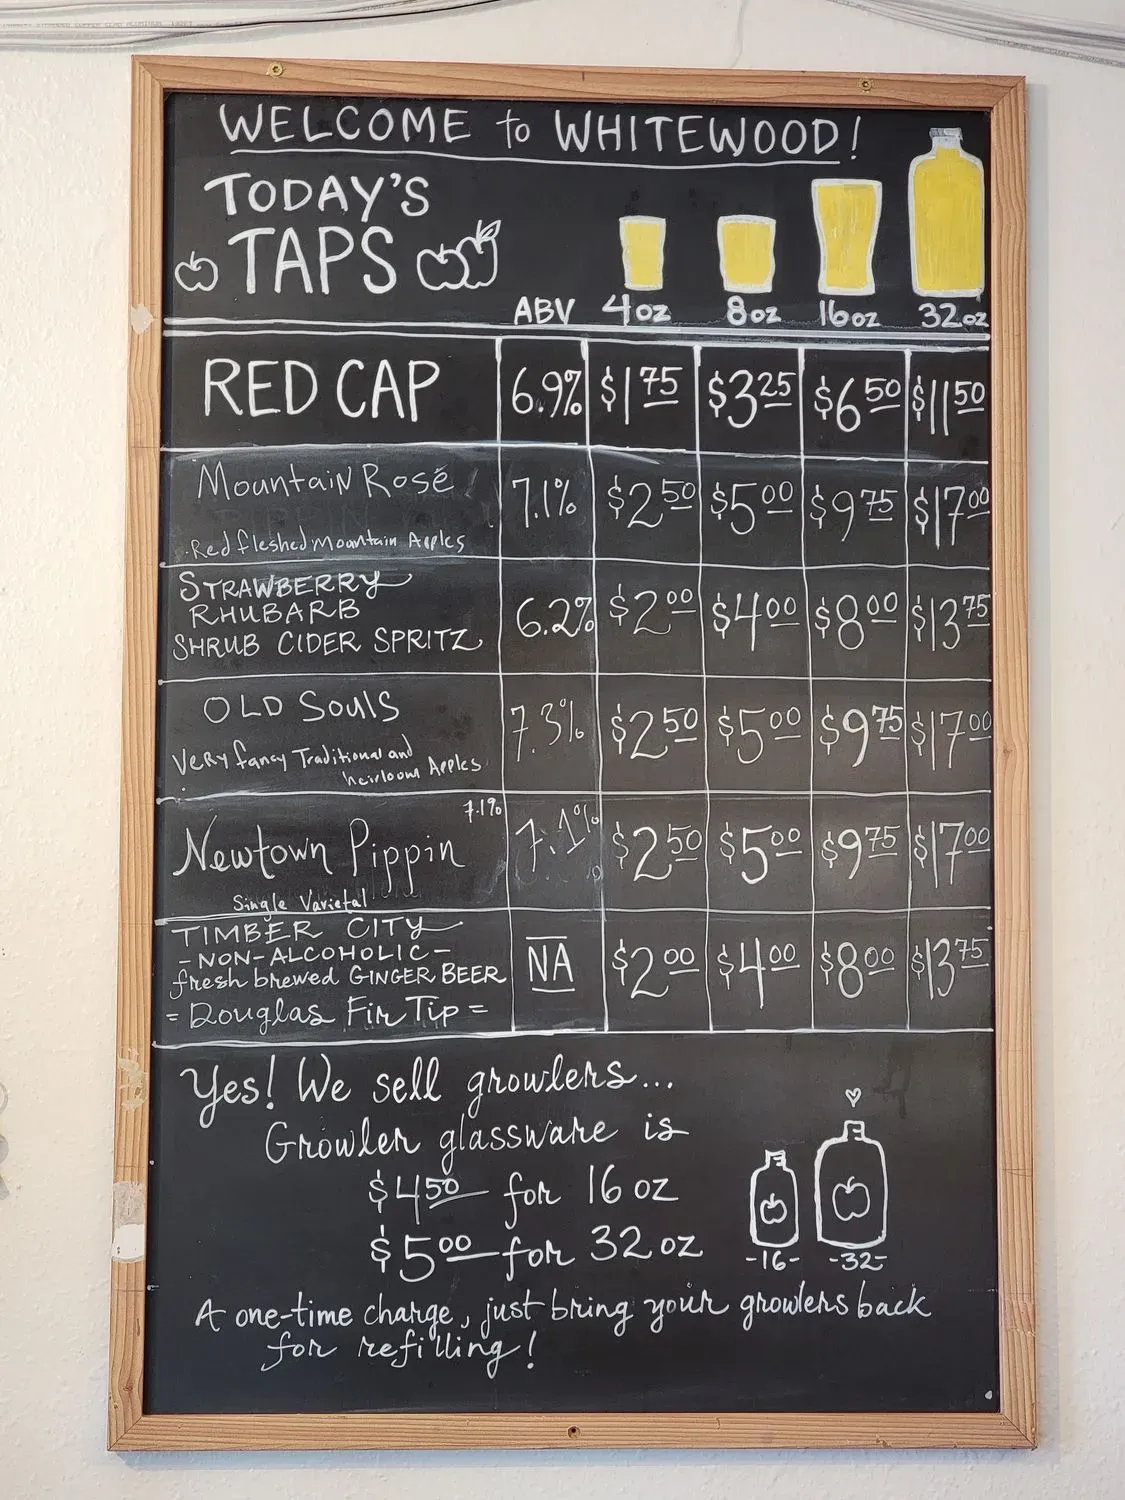 WELCOME to WHITEWOOD!
TODAY'S
TAPS
ABV 4oz 8oz 16oz 32oz
RED CAP 6.9% $1.75 $3.25 $6.50 $11.50
Mountain Rosé 7.1% $2.50 $5.00 $9.75 $17.00
Red fleshed Mountain Apples
STRAWBERRY
RHUBARB
SHRUB CIDER SPRITZ 6.2% $2.00 $4.00 $8.00 $13.75
OLD Souls 7.3% $2.50 $5.00 $9.75 $17.00
Very fancy Traditional and
heirloom Apples
7.1%
Newtown Pippin 7.1% $2.50 $5.00 $9.75 $17.00
Single Varietal
TIMBER CITY
-NON-ALCOHOLIC-
fresh brewed GINGER BEER NA $2.00 $4.00 $8.00 $13.75
= Douglas Fir Tip =
Yes! We sell growlers...
Growler glassware is
$4.50 for 16 oz
$5.00 for 32 oz
-16- -32-
A one-time charge, just bring your growlers back
for refilling!